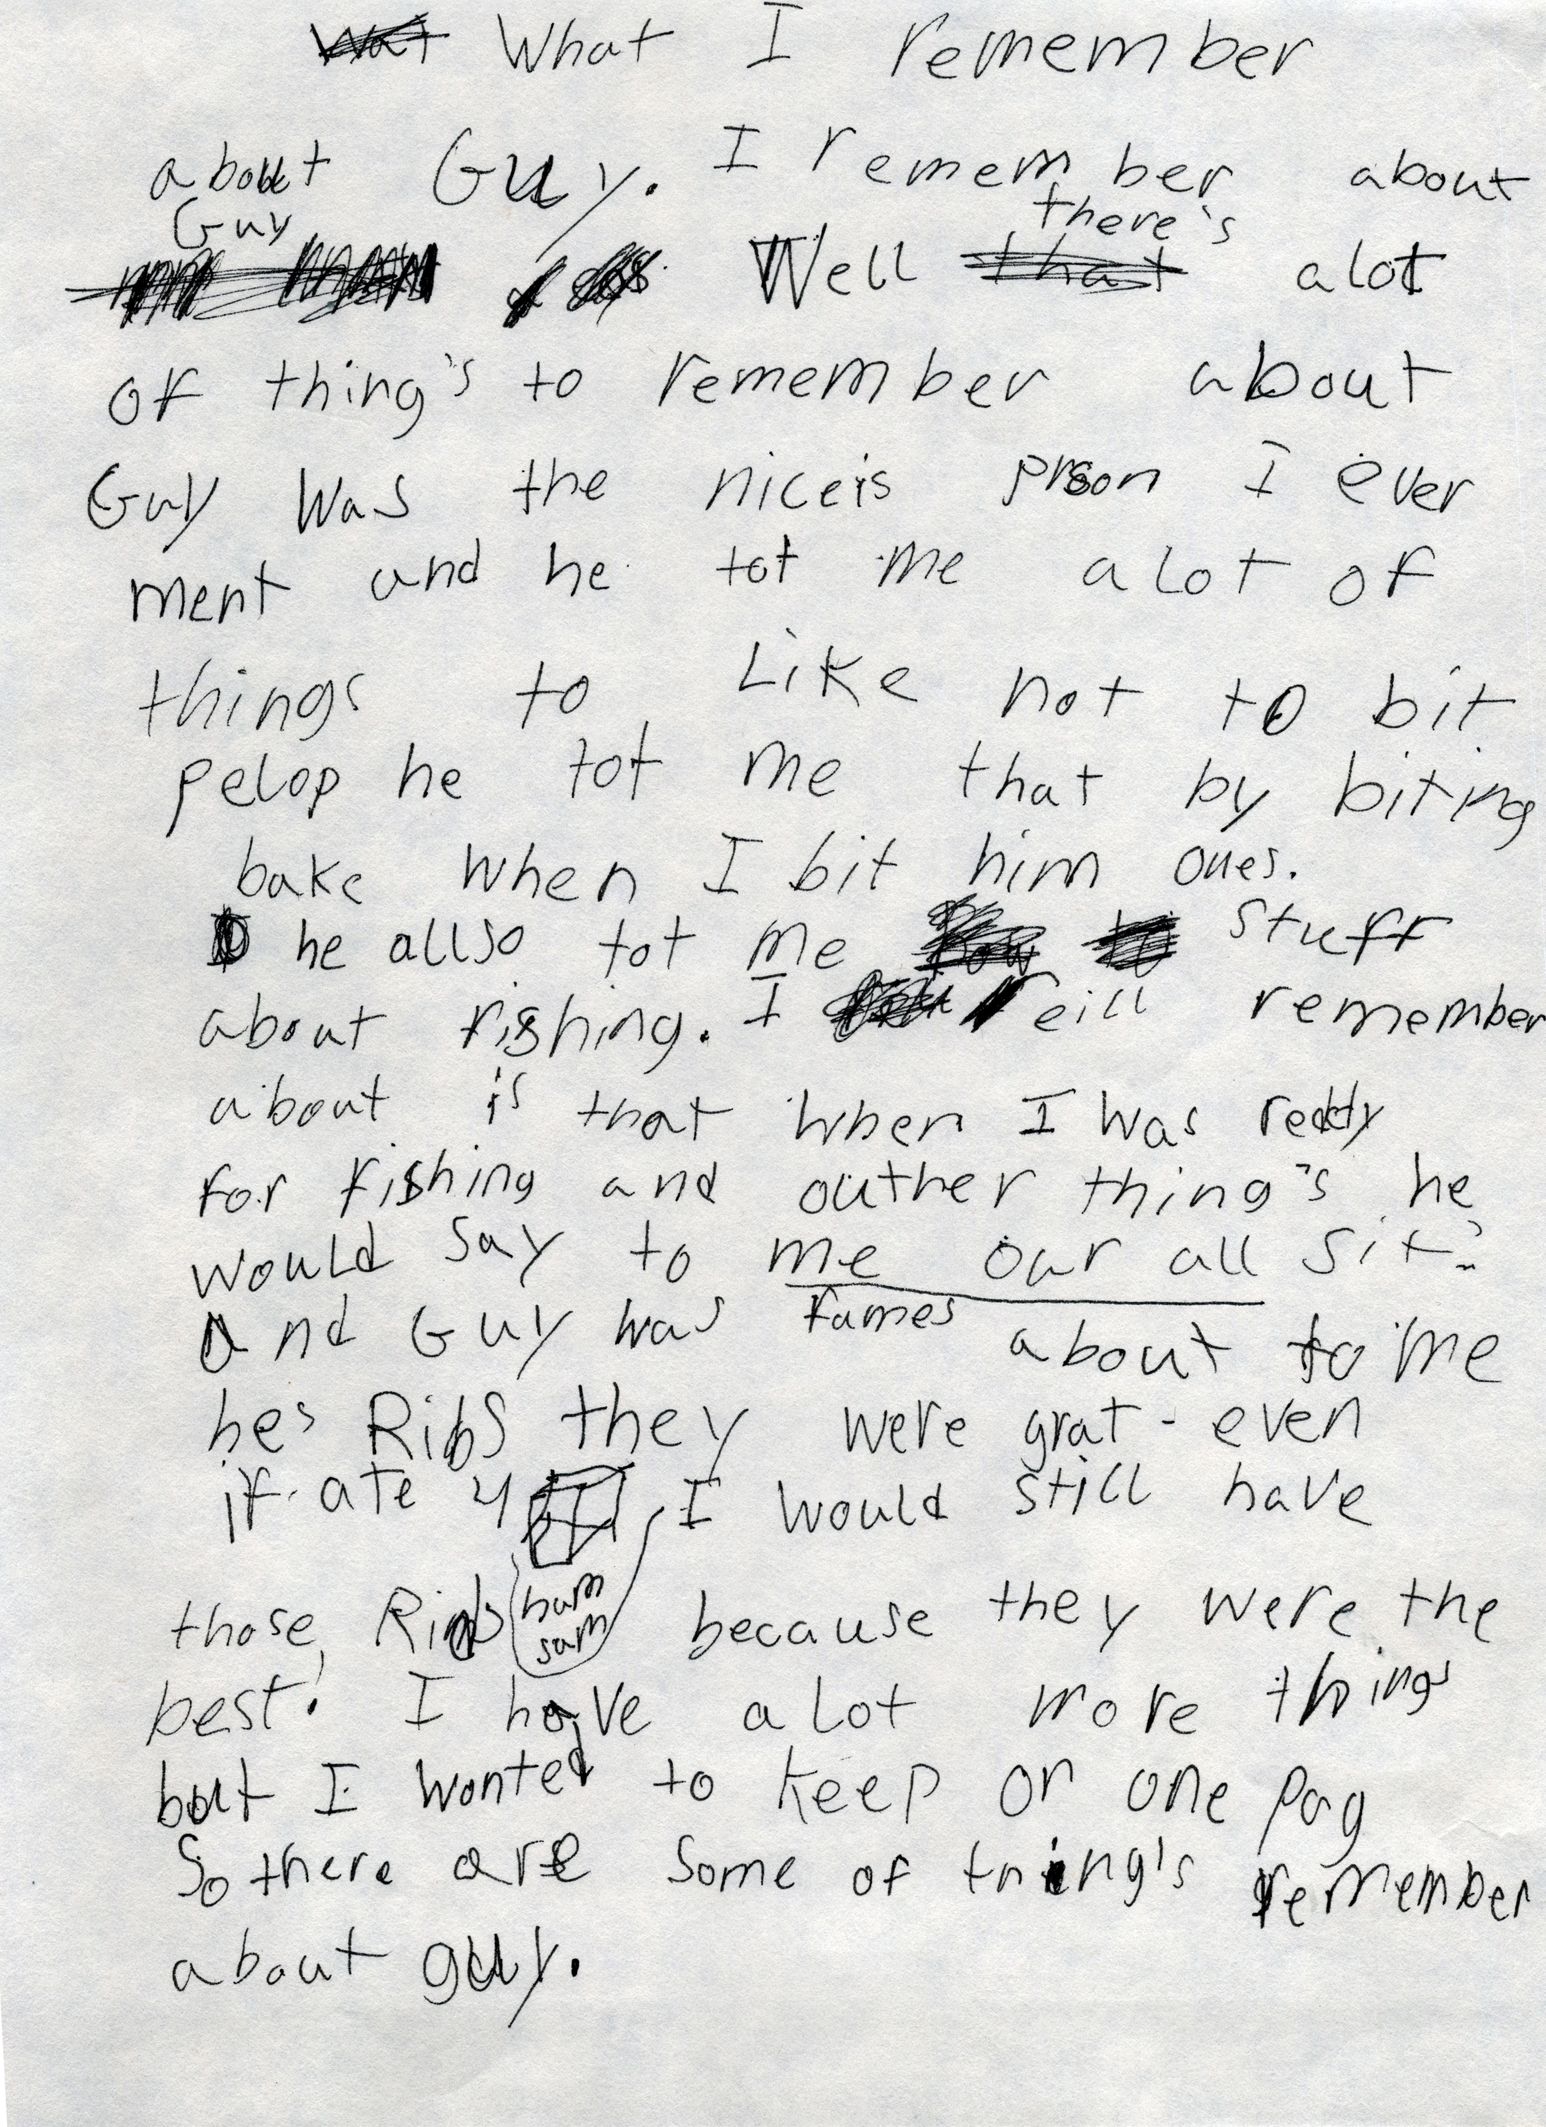 What I remember
about Guy. I remember about
Guy Well there's alot
of thing's to remember about
Guy was the niceis prson I ever
ment and he tot me alot of
things to Like not to bit
pelop he tot me that by biting
bake when I bit him ones.
he allso tot me stuff
about fishing. I reill remember
about is that when I was reddy
for fishing and outher thing's he
would say to me our all sit?
And Guy was fames about to me
hes Ribs they were grat even
if ate 4 I would still have
ham
sam
those Ribs because they were the
best! I have alot more things
but I wonted to keep on one pag
So there are some of thing's remember
about guy.